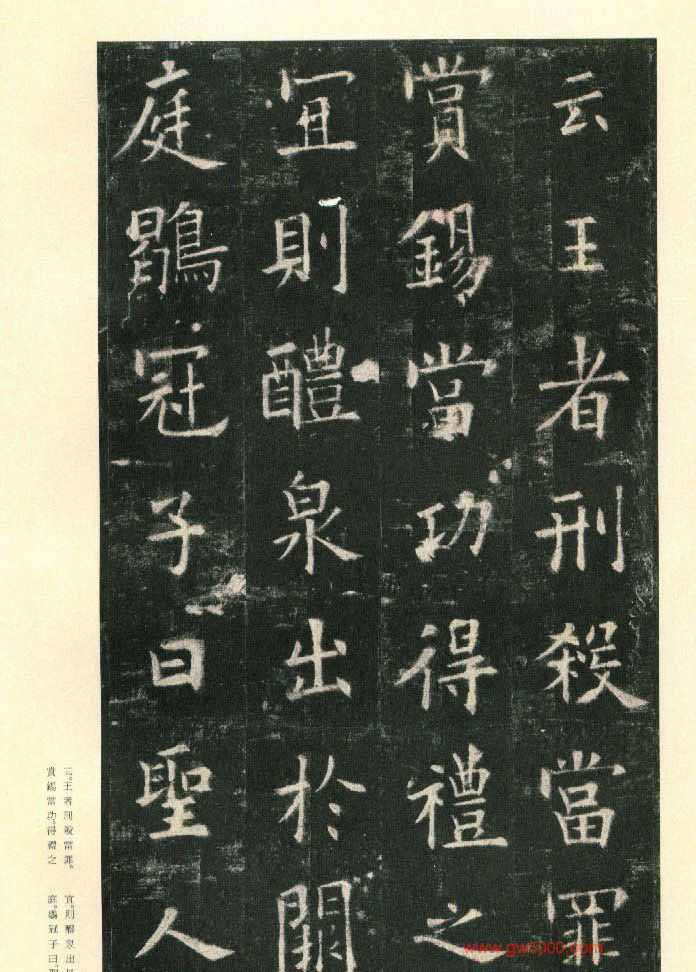 云王者刑殺當罪
賞錫當功得禮之
宜則醴泉出於闕
庭鶡冠子曰聖人
云。王者刑殺當罪。
賞錫當功。得禮之
宜。則醴泉出於
庭。鶡冠子曰。
www.gw5000.com